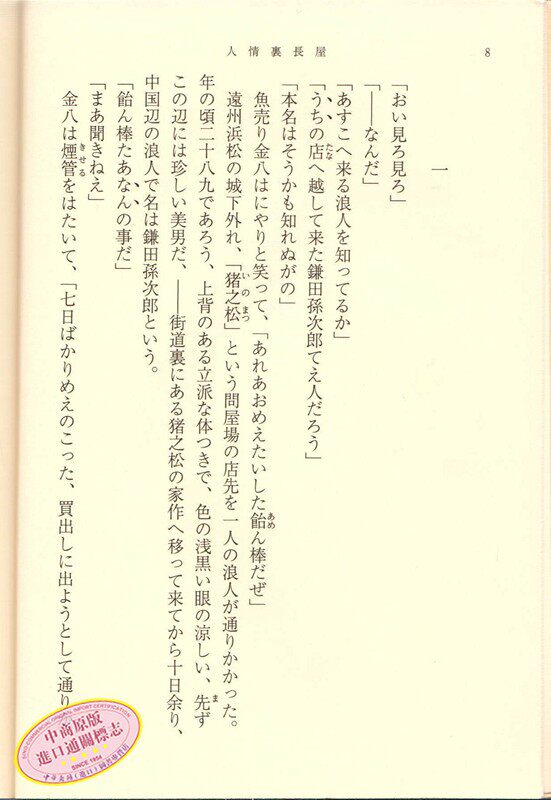 人情裏長屋
8
一
「おい見ろ見ろ」
「――なんだ」
「あすこへ来る浪人を知ってるか」
「うちの店へ越して来た鎌田孫次郎てえ人だろう」
たな
「本名はそうかも知れぬがの」
魚売り金八はにやりと笑って、「あれあおめえたいした飴ん棒だぜ」
あめ
遠州浜松の城下外れ、「猪之松」という問屋場の店先を一人の浪人が通りかかった。
いのまつ
年の頃二十八九であろう、上背のある立派な体つきで、色の浅黒い眼の涼しい、先ず
ま
この辺には珍しい美男だ、――街道裏にある猪之松の家作へ移って来てから十日余り、
中国辺の浪人で名は鎌田孫次郎という。
「飴ん棒たあなんの事だ」
「まあ聞きねえ」
金八は煙管をはたいて、「七日ばかりめえのこった、買出しに出ようとして通り
きせる
中商原版
進口通關標志
SINCE 1984